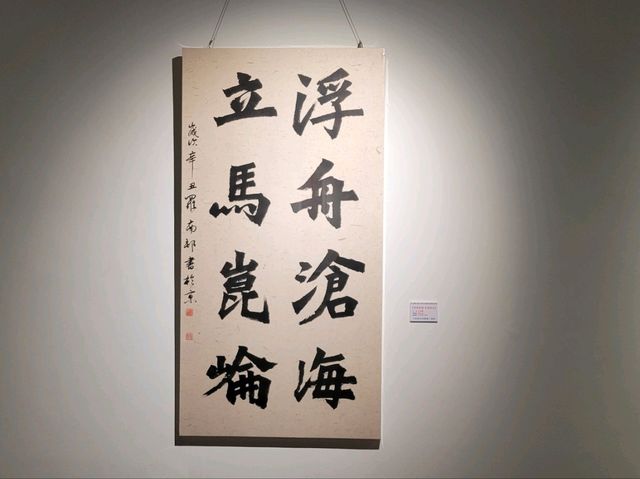 浮舟滄海
立馬崑崙
歲次辛丑羅南邨書於京